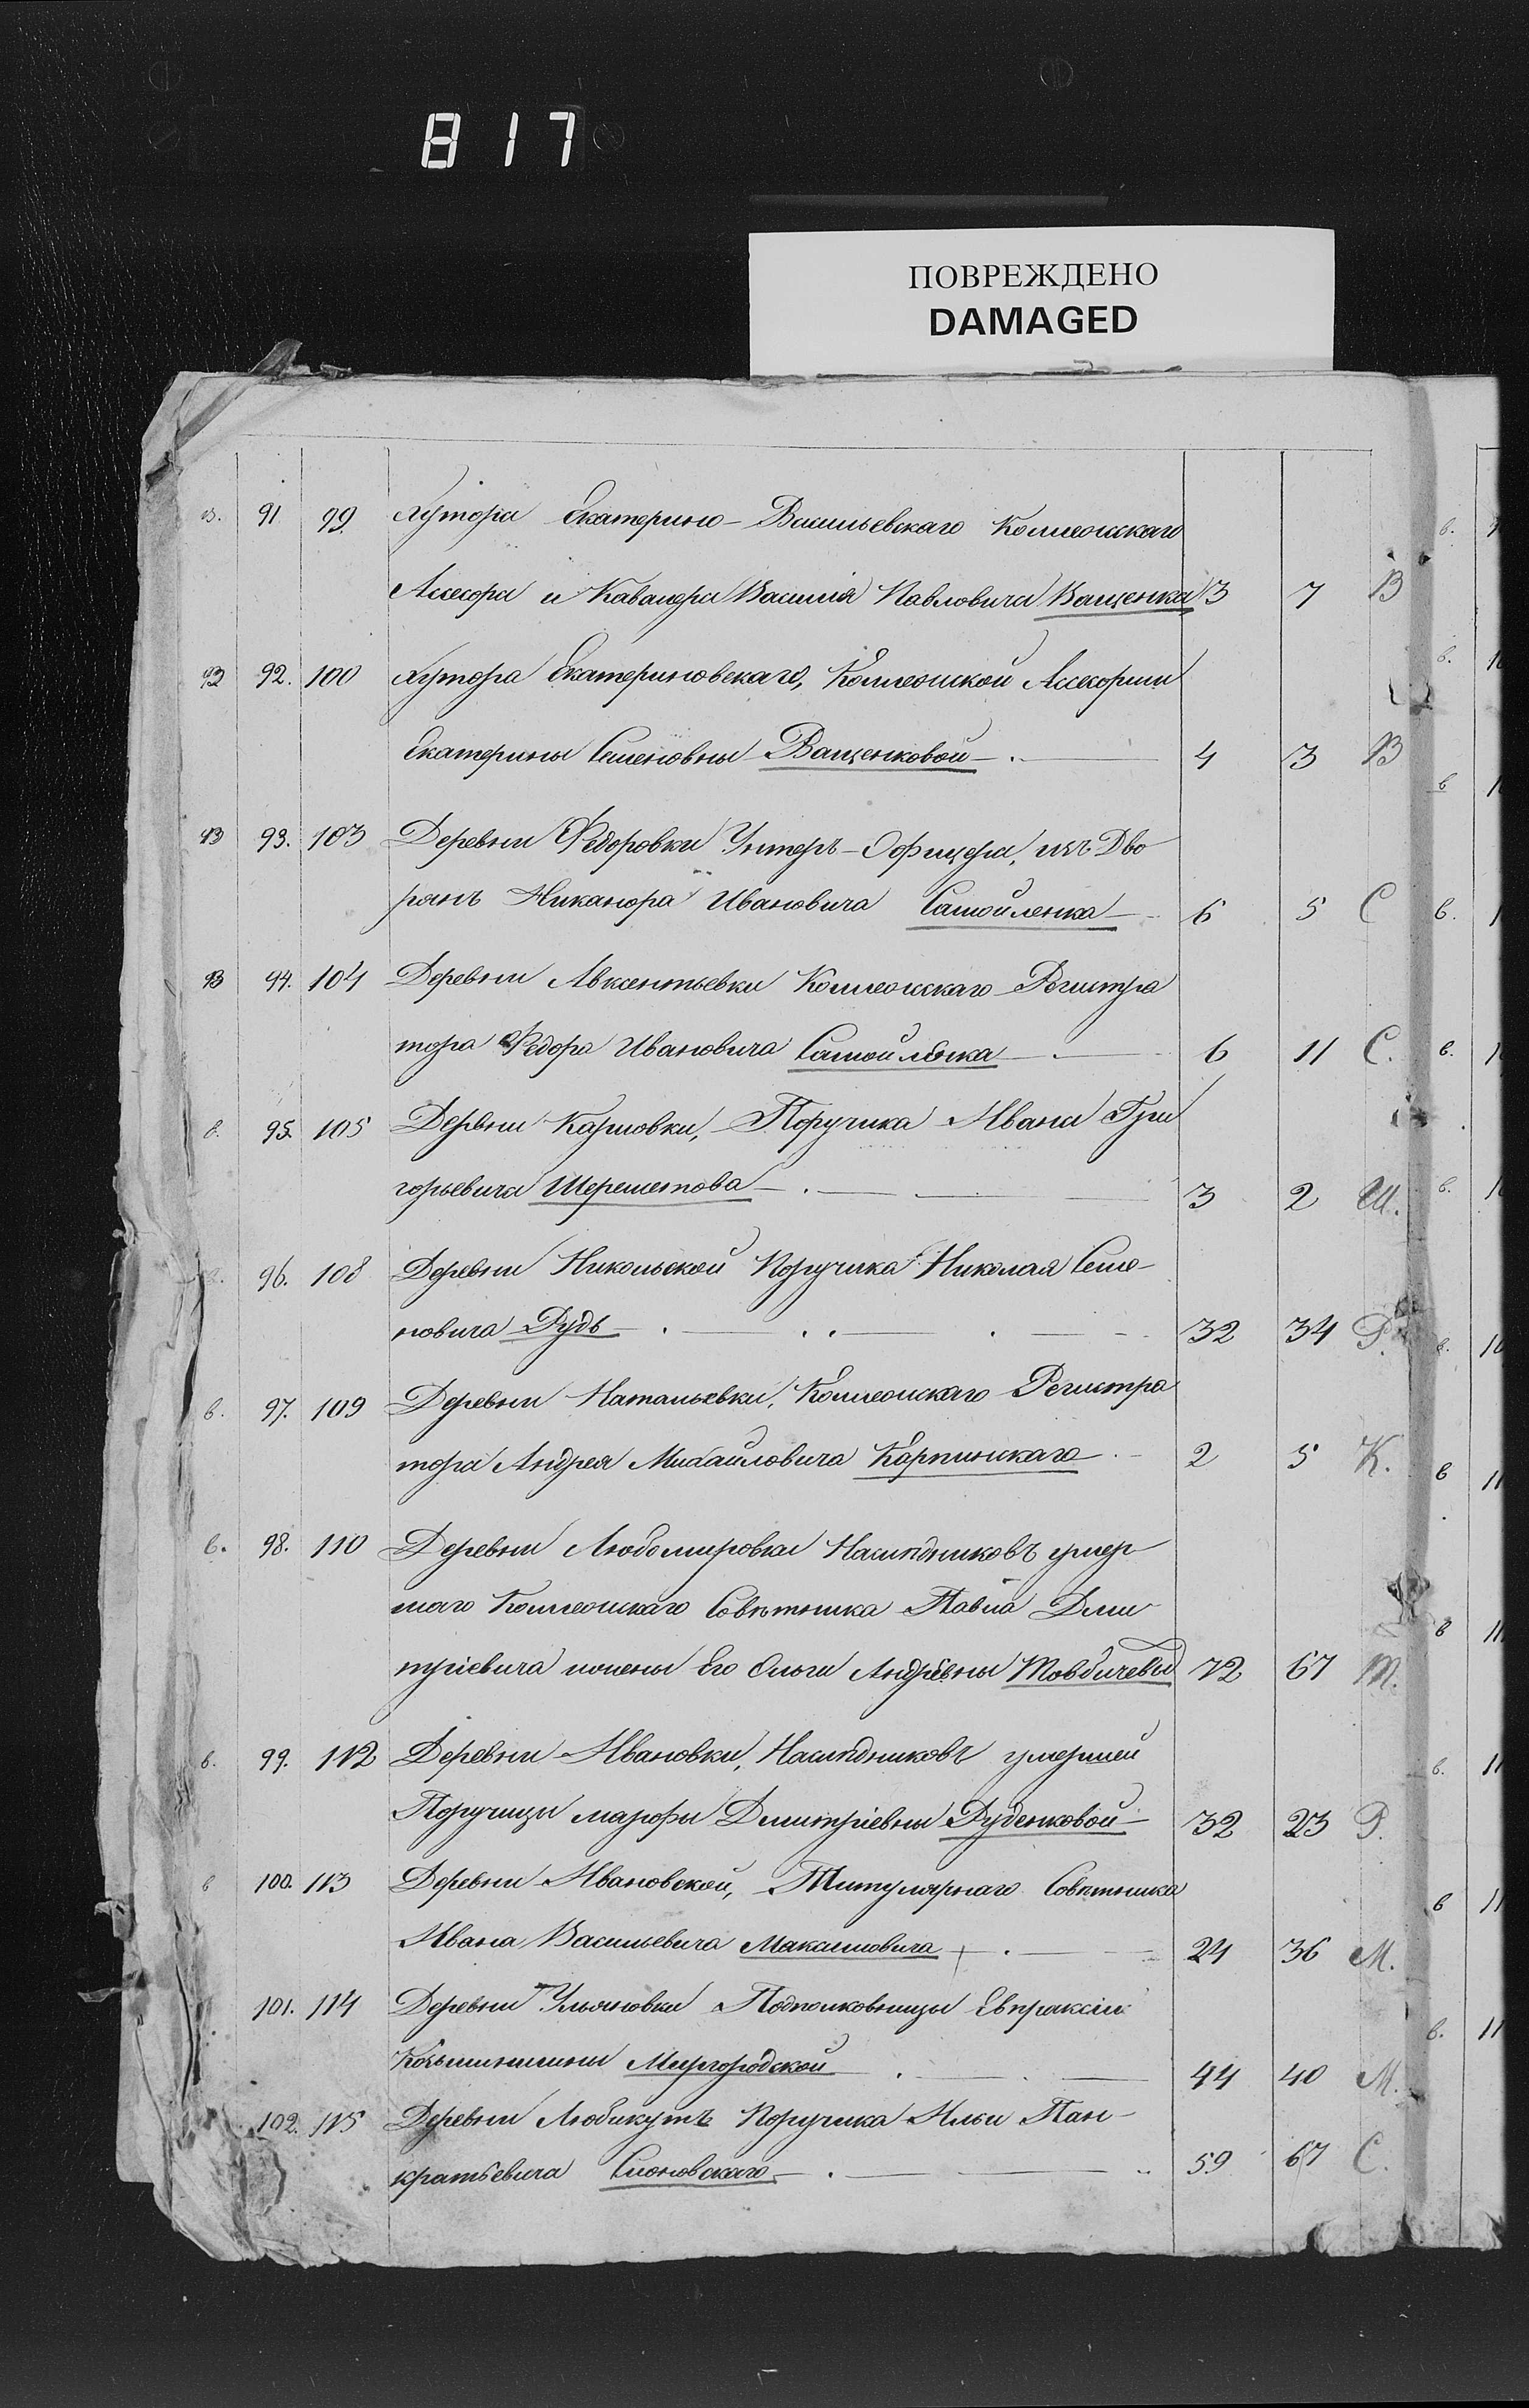 817
ПОВРЕЖДЕНО
DAMAGED
в. 91 99. Хутора Екатерино-Васильевскаго Коллежскаго
Ассесора и Кавалера Василія Павловича Ващенка 3 7 В
93 92. 100 Хутора Екатериновскаго, Коллежской Ассесорши
Екатерины Семеновны Ващенковой 4 3 В
93 93. 103 Деревни Федоровки Унтеръ-Офицера, изъ Дво
рянъ Никанора Ивановича Самойленка 6 5 С
93 94. 104 Деревни Авксентьевки Коллежскаго Регистра
тора Федора Ивановича Самойленка 6 11 С.
в. 95. 105 Деревни Карповки, Поручика Ивана Гри
горьевича Шереметова 3 2 Ш.
в. 96. 108 Деревни Никольской Поручика Николая Семе-
новича Рудь 32 34 Р.
в. 97. 109 Деревни Натальевки, Коллежскаго Регистра
тора Андрея Михайловича Карпинскаго 2 5 К.
в. 98. 110 Деревни Любомировки Наслѣдниковъ умер
шаго Коллежскаго Совѣтника Павла Дми
тріевича и жены Его Ольги Андрѣевны Товбичевы 72 67 Т.
в. 99. 112 Деревни Ивановки, Наслѣдниковъ умершей
Поручицы Марфы Дмитріевны Руденковой 32 23 Р.
в 100. 113 Деревни Ивановской, Титулярнаго Совѣтника
Ивана Васильевича Максимовича 24 36 М.
101. 114 Деревни Ульяновки Подполковницы Евпраксіи
Козьминишны Миргородской 44 40 М.
102. 115 Деревни Любикутъ Поручика Ильи Пан-
кратьевича Слоновскаго 59 67 С.